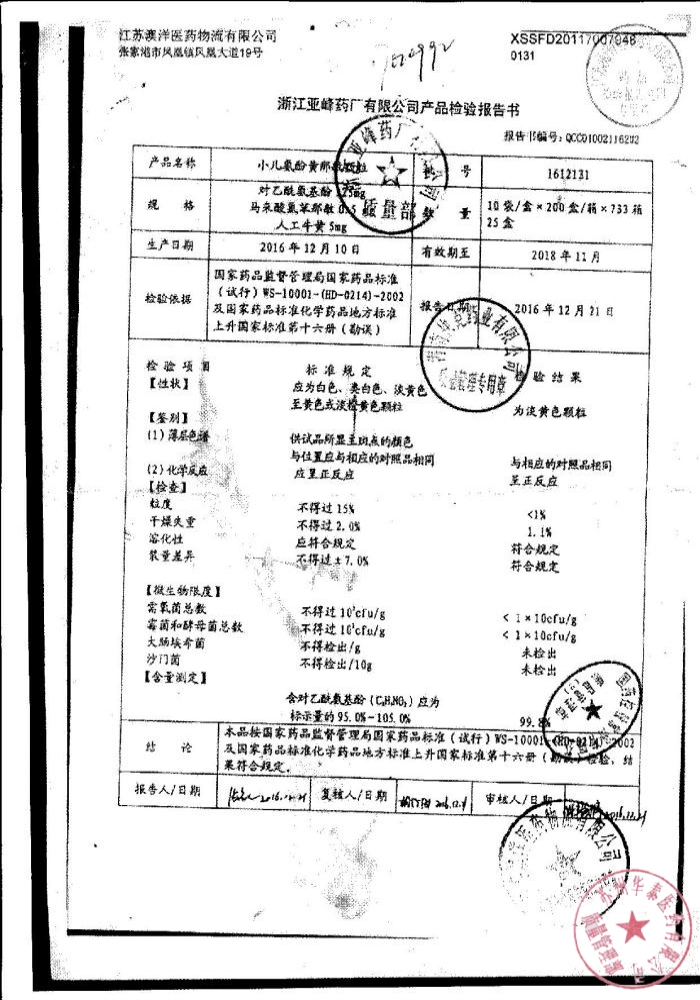 江苏澳洋医药物流有限公司
张家港市凤凰镇凤凰大道19号
XSSFD20117007948
0131
浙江亚峰药厂有限公司产品检验报告书
报告书编号：QCC01002116202
产品名称 小儿氨酚黄那敏颗粒 号 1612131
规 格 对乙酰氨基酚 125mg 马来酸氯苯那敏 0.5 人工牛黄 5mg 量 10 袋/盒×200 盒/箱×733 箱 25 盒
生产日期 2016 年 12 月 10 日 有效期至 2018 年 11 月
检验依据 国家药品监督管理局国家药品标准（试行）WS-10001-(HD-0214)-2002 及国家药品标准化学药品地方标准上升国家标准第十六册（勘误） 报告日期 2016 年 12 月 21 日
检 验 项 目 标 准 规 定 检 验 结 果
【性状】 应为白色、类白色、淡黄色
至黄色或淡橙黄色颗粒 为淡黄色颗粒
【鉴别】
(1) 薄层色谱 供试品所显主斑点的颜色
与位置应与相应的对照品相同 与相应的对照品相同
(2) 化学反应 应呈正反应 呈正反应
【检查】
粒度 不得过 15% <1%
干燥失重 不得过 2.0% 1.1%
溶化性 应符合规定 符合规定
装量差异 不得过±7.0% 符合规定
【微生物限度】
需氧菌总数 不得过 10³cfu/g < 1×10cfu/g
霉菌和酵母菌总数 不得过 10²cfu/g < 1×10cfu/g
大肠埃希菌 不得检出/g 未检出
沙门菌 不得检出/10g 未检出
【含量测定】
含对乙酰氨基酚 (C₈H₉NO₂) 应为
标示量的 95.0%-105.0% 99.8%
结 论 本品按国家药品监督管理局国家药品标准（试行）WS-10001-(HD-0214)-2002
及国家药品标准化学药品地方标准上升国家标准第十六册（勘误）检验，结
果符合规定。
报告人/日期 2016.12.21 复核人/日期 2016.12.21 审核人/日期 2016.12.21
质量部
质量管理专用章